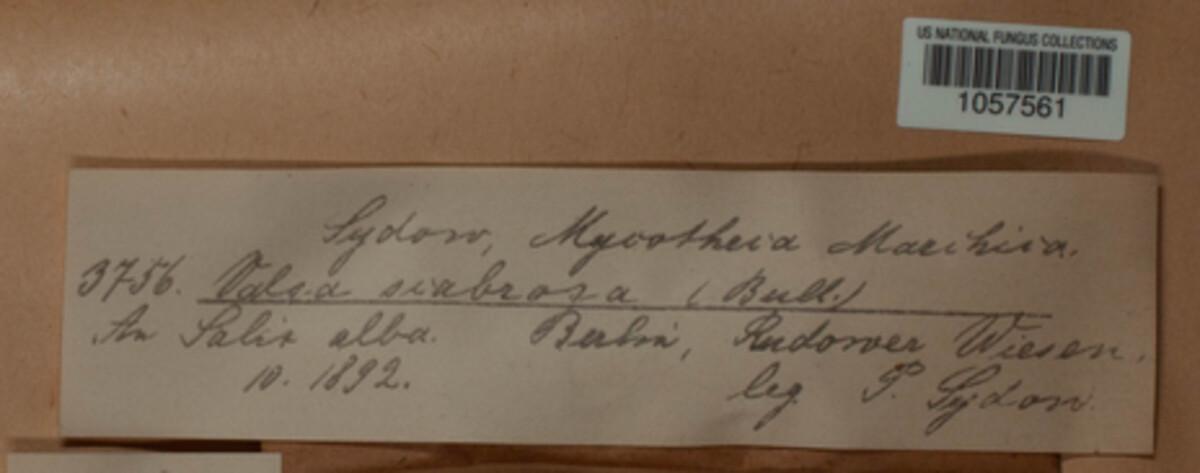 US NATIONAL FUNGUS COLLECTIONS
1057561
Sydow, Mycotheca Marchica.
3756. Valsa scabrosa (Bull.)
An Salix alba. Berlin, Rudower Wiesen.
10. 1892. leg. P. Sydow.